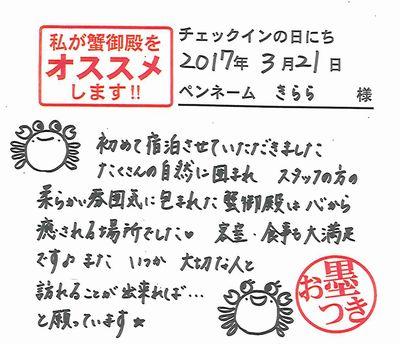 私が蟹御殿を
オススメ
します!!
チェックインの日にち
2017年 3月21日
ペンネーム きらら 様
初めて宿泊させていただきました
たくさんの自然に囲まれ スタッフの方の
柔らかい雰囲気に包まれた蟹御殿は心から
癒される場所でした♥ 客室・食事も大満足
です♪ また いつか 大切な人と
訪れることが出来れば…
と願っています☆
お墨つき